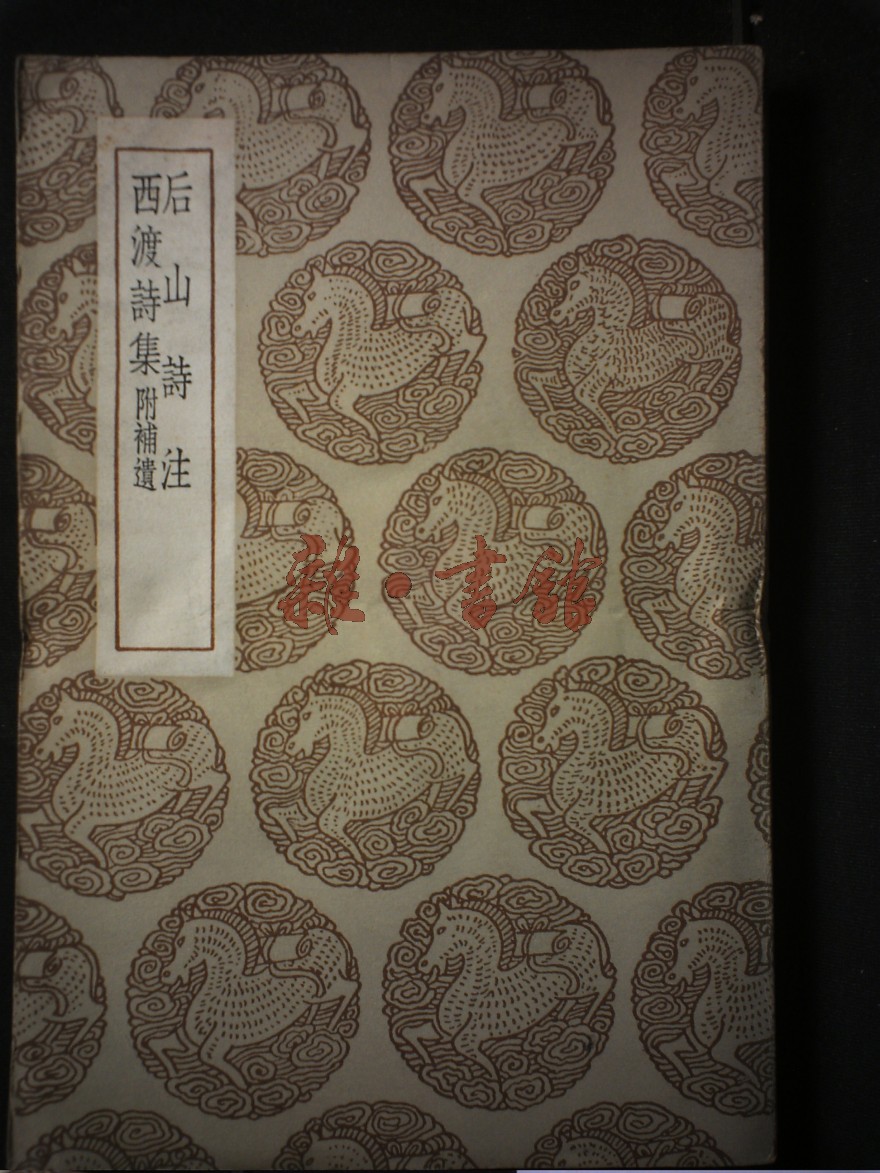 后山詩注
西渡詩集附補遺
雜·書館